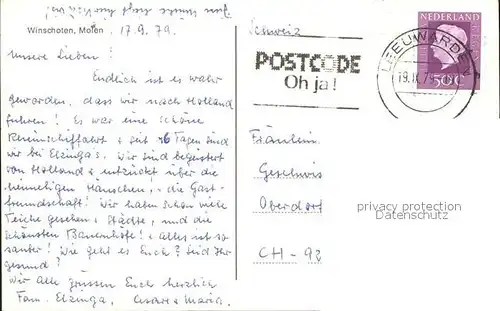 Winschoten, Molen 17.9.79.
Unsere Lieben!
Endlich ist es wahr
geworden, dass wir nach Holland
fuhren! Es war eine schöne
Rheinschiffahrt + seit 16 Tagen sind
wir bei Elzinga's. Wir sind begeistert
von Holland + entzückt über die
heimeligen Häuschen, + die Gast-
freundschaft! Wir haben schon viele
Teiche gesehen + Städte, und die
schönsten Bauernhöfe! + alles ist so
sauber! Wie geht es Euch? Seid Ihr
gesund?
Wir alle grüssen Euch herzlich
Fam. Elzinga, Cesare + Maria.
Schweiz
POSTCODE
Oh ja!
LEEUWARDEN
19.IX.79
NEDERLAND
50c
Fräulein
Geschwis
Oberdorf
CH-92
privacy protection
Datenschutz